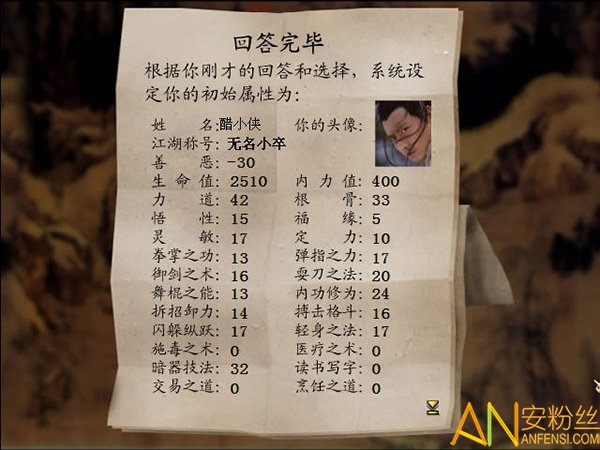 回答完毕
根据你刚才的回答和选择，系统设
定你的初始属性为：
姓名：醋小侠 你的头像：
江湖称号：无名小卒
善恶：-30
生命值：2510 内力值：400
力道：42 根骨：33
悟性：15 福缘：5
灵敏：17 定力：10
拳掌之功：13 弹指之力：17
御剑之术：16 耍刀之法：20
舞棍之能：13 内功修为：24
拆招卸力：14 搏击格斗：16
闪躲纵跃：17 轻身之法：17
施毒之术：0 医疗之术：0
暗器技法：32 读书写字：0
交易之道：0 烹饪之道：0
AN 安粉丝
ANFENSI.COM